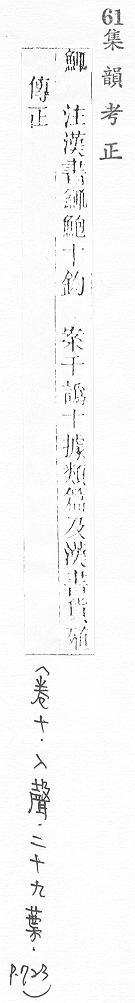 61集韻考正
鮿 注漢書鮿鮑十鈞 案千譌十據類篇及漢書貨殖
傳正
(卷十·入聲·二十九葉·P.723)